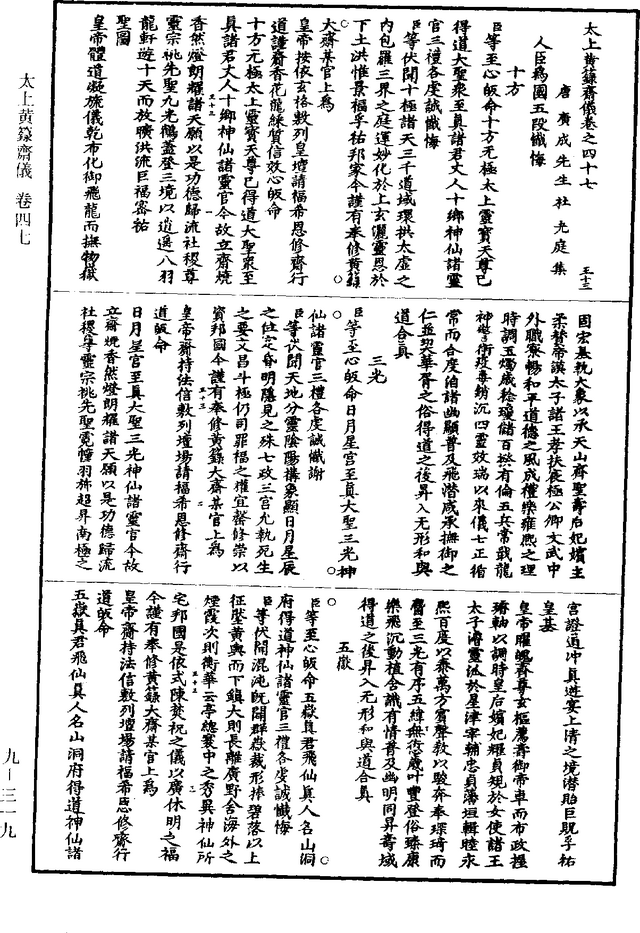 太上黄籙齋儀卷之四十七
王十三
唐廣成先生杜光庭集
人臣爲國五段懺悔
十方
臣等至心皈命十方无極太上靈寶天尊已
得道大聖衆至真諸君丈人十鄉神仙諸靈
官三禮各虔誠懺悔
臣等伏聞十極諸天三千道域環拱太虛之
內包羅三界之庭運妙化於上玄灑靈恩於
下土洪惟景福孚祐邦家今謹有奉修黄籙
大齋某官上爲
皇帝按依玄格數列皇壇請福希恩修齋行
道謹齋香花龍綵質信效心皈命
十方元極太上靈寶天尊已得道大聖衆至
真諸君丈人十鄉神仙諸靈官今故立齋燒
香然燈朗耀諸天願以是功德歸流社稷尊
靈宗祧先聖九光鶴蓋登三境以逍遥八羽
龍軿遊十天而放曠洪流巨福宻祐
聖圖
皇帝體道凝旒儀乾布化御飛龍而撫物嶽
固宏基軌大象以承天山齊聖壽后妃嬪主
柔賛帝謨太子諸王孝扶扆極公卿文武中
外職寮暢和平道德之風成禮樂雍熙之理
時調玉燭歲稔瓊儲百揆有倫五兵常戢龍
神警衛疫毒銷沉四靈效瑞以來儀七正循
常而合度洎諸幽顯普及飛潛咸承撫御之
仁並契華胥之俗得道之後昇入无形和與
道合真
三光
臣等至心皈命日月星宫至真大聖三光神
仙諸靈官三禮各虔誠懺謝
臣等伏聞天地分靈陰陽搆象顯日月星辰
之位定昏明隱見之殊七政三宫允執死生
之要文昌斗極仍司罪福之權宜罄修崇以
資邦國今謹有奉修黄籙大齋某官上爲
皇帝齋持法信數列壇場請福希恩修齋行
道皈命
日月星宫至真大聖三光神仙諸靈官今故
立齋燒香然燈朗耀諸天願以是功德歸流
社稷尊靈宗祧先聖霓幢羽斾超昇南極之
宫證道沖真遊宴上清之境潛貽巨貺孚祐
皇基
皇帝曜魄齊尊玄樞薦壽御帝車而布政握
璿軸以調時皇后嬪妃耀員規於女使諸王
太子濬靈派於星津宰輔忠貞藩垣輯睦永
熙百度以泰萬方賓聲教以駿奔奉琛琦而
麕至三光有序五緯無愆歲叶豐登俗臻康
樂飛沉動植含識有情普及幽明同昇壽域
得道之後昇入无形和與道合真
五嶽
臣等至心皈命五嶽真君飛仙真人名山洞
府得道神仙諸靈官三禮各虔誠懺悔
臣等伏聞混沌旣開群嶽裁形捧碧落以上
征壓黄輿而下鎮大則長離廣野含海外之
煙霞次則衡華云亭總寰中之秀異神仙所
宅邦國是依式陳焚祝之儀以廣休明之福
今謹有奉修黄籙大齋某官上爲
皇帝齋持法信數列壇場請福希恩修齋行
道皈命
五嶽真君飛仙真人名山洞府得道神仙諸
太上黄籙齋儀 卷四七
九－三一九